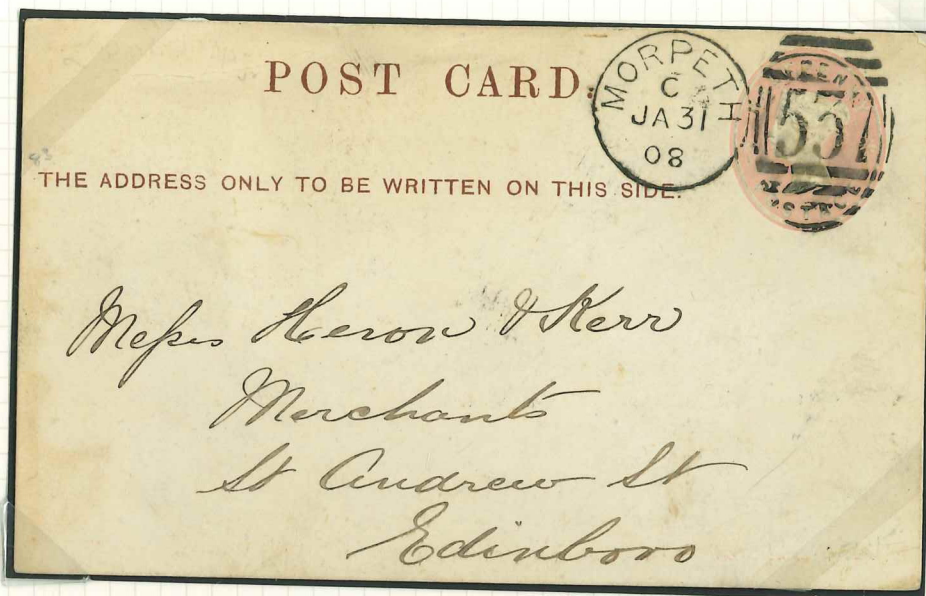 POST CARD.
MORPETH
C
JA 31
08
557
THE ADDRESS ONLY TO BE WRITTEN ON THIS SIDE.
Messrs Heron & Kerr
Merchants
St Andrew St
Edinboro